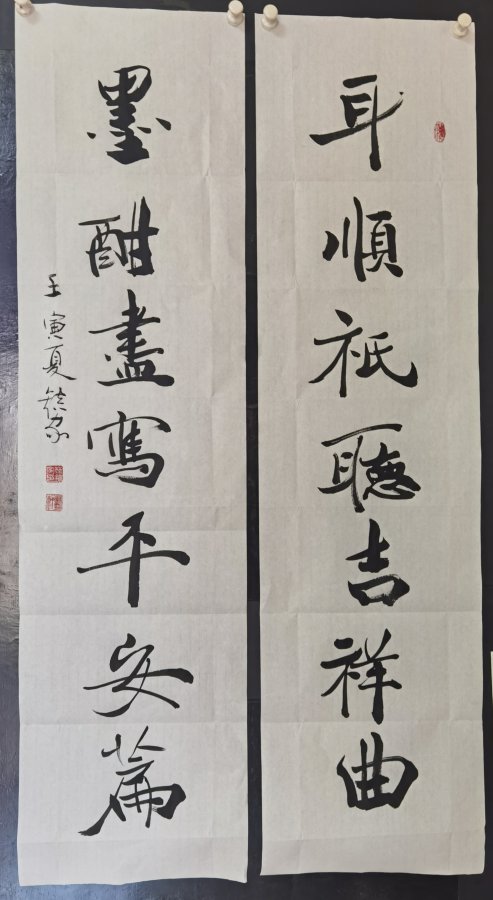 耳順祇聽吉祥曲
墨酣盡寫平安篇
壬寅夏